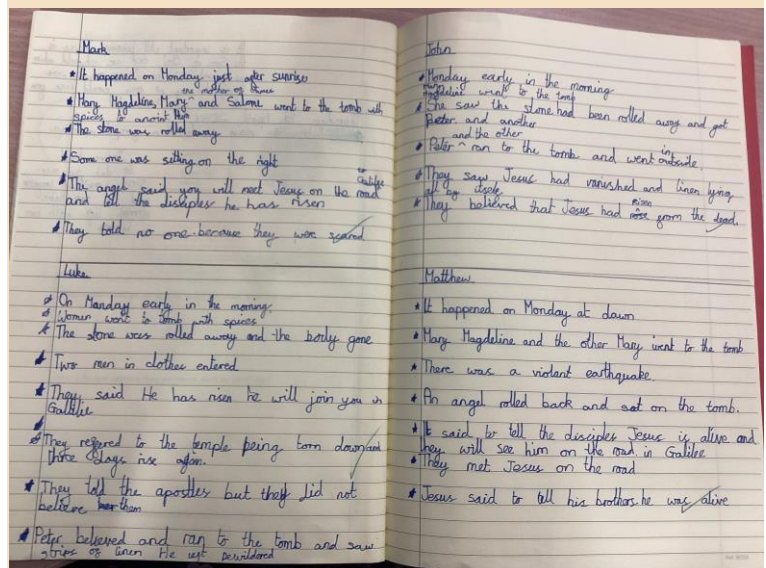 Mark
It happened on Monday just after sunrise
the mother of James
Mary Magdeline, Mary ^ and Salome went to the tomb with
spices to anoint him
The stone was rolled away
Some one was sitting on the right
The angel said you will meet Jesus on the road to Galilee
and tell the disciples he has risen
They told no one because they were scared
Luke
On Monday early in the morning.
Women went to tomb with spices
The stone was rolled away and the body gone
Two men in clothes entered
They said He has risen he will join you in
Galilie
They refered to the temple being torn down and
three days rise again.
They told the apostles but they did not
believe them
Peter believed and ran to the tomb and saw
strips of linen He left bewildered
John
Monday early in the morning
Mary Magdeline went to the tomb
She saw the stone had been rolled away and got
Peter and another
and the other
Peter ^ ran to the tomb and went inside
They saw Jesus had vanished and linen lying
all by itself
They believed that Jesus had risen from the dead.
Matthew
It happened on Monday at dawn
Mary Magdeline and the other Mary went to the tomb
There was a violent earthquake.
An angel rolled back and sat on the tomb.
It said to tell the disciples Jesus is alive and
they will see him on the road in Galilee
They met Jesus on the road
Jesus said to tell his brothers he was alive